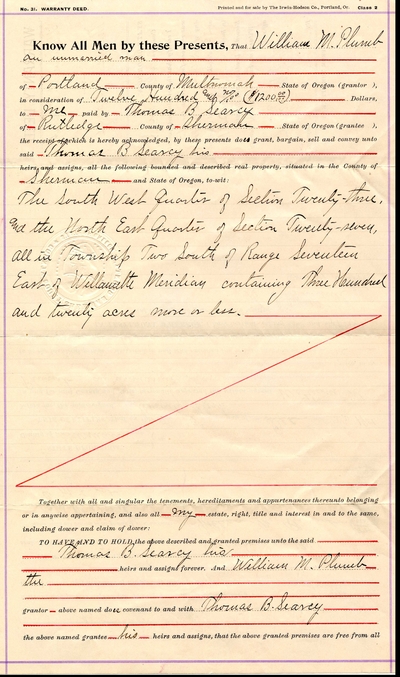 No. 31. WARRANTY DEED. Printed and for sale by The Irwin-Hodson Co., Portland, Or. Class 2
Know All Men by these Presents, That William M. Plumb
an unmarried man
of Portland County of Multnomah State of Oregon (grantor ),
in consideration of Twelve Hundred and no/100 ($1200.00) Dollars,
to me paid by Thomas B Searcy
of Rutledge County of Sherman State of Oregon (grantee ),
the receipt of which is hereby acknowledged, by these presents does grant, bargain, sell and convey unto
said Thomas B Searcy his
heirs and assigns, all the following bounded and described real property, situated in the County of
Sherman and State of Oregon, to-wit:
The South West Quarter of Section Twenty-three,
and the North East Quarter of Section Twenty-seven,
all in Township Two South of Range Seventeen
East of Willamette Meridian containing Three Hundred
and twenty acres more or less.
Together with all and singular the tenements, hereditaments and appurtenances thereunto belonging
or in anywise appertaining, and also all my estate, right, title and interest in and to the same,
including dower and claim of dower:
TO HAVE AND TO HOLD, the above described and granted premises unto the said
Thomas B. Searcy his
heirs and assigns forever. And William M. Plumb
the
grantor above named does covenant to and with Thomas B. Searcy
the above named grantee his heirs and assigns, that the above granted premises are free from all